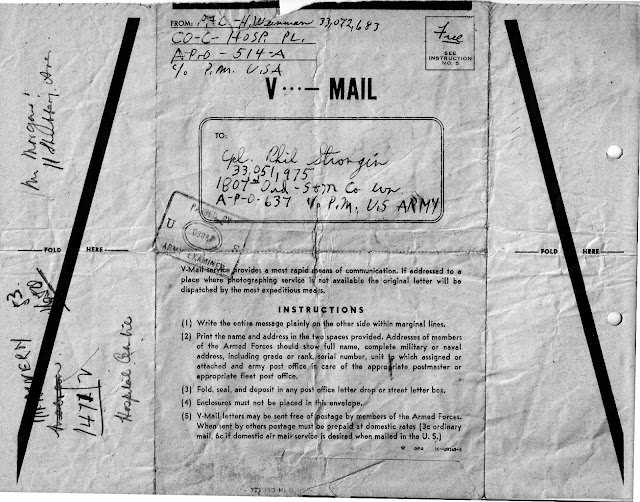 FROM: Pfc - H. Weinman 33,072,683
CO-C- HOSP. PL.
A-P-O - 514-A
c/o P.M. U.S.A
Free
SEE
INSTRUCTION
NO. 5
V···— MAIL
TO:
Cpl. Phil Strongin
33,051,975
1807th Ord-S&M Co avn
A-P-O-637 c/o P.M. U.S ARMY
PASSED BY
U S
ARMY EXAMINER
FOLD HERE
FOLD HERE
V-Mail service provides a most rapid means of communication. If addressed to a
place where photographing service is not available the original letter will be
dispatched by the most expeditious means.
INSTRUCTIONS
(1) Write the entire message plainly on the other side within marginal lines.
(2) Print the name and address in the two spaces provided. Addresses of members
of the Armed Forces should show full name, complete military or naval
address, including grade or rank, serial number, unit to which assigned or
attached and army post office in care of the appropriate postmaster or
appropriate fleet post office.
(3) Fold, seal, and deposit in any post office letter drop or street letter box.
(4) Enclosures must not be placed in this envelope.
(5) V-Mail letters may be sent free of postage by members of the Armed Forces.
When sent by others postage must be prepaid at domestic rates (3c ordinary
mail, 6c if domestic air mail service is desired when mailed in the U. S.)
GPO
Mr Morgans'
11 Ave.
Hospital Centre